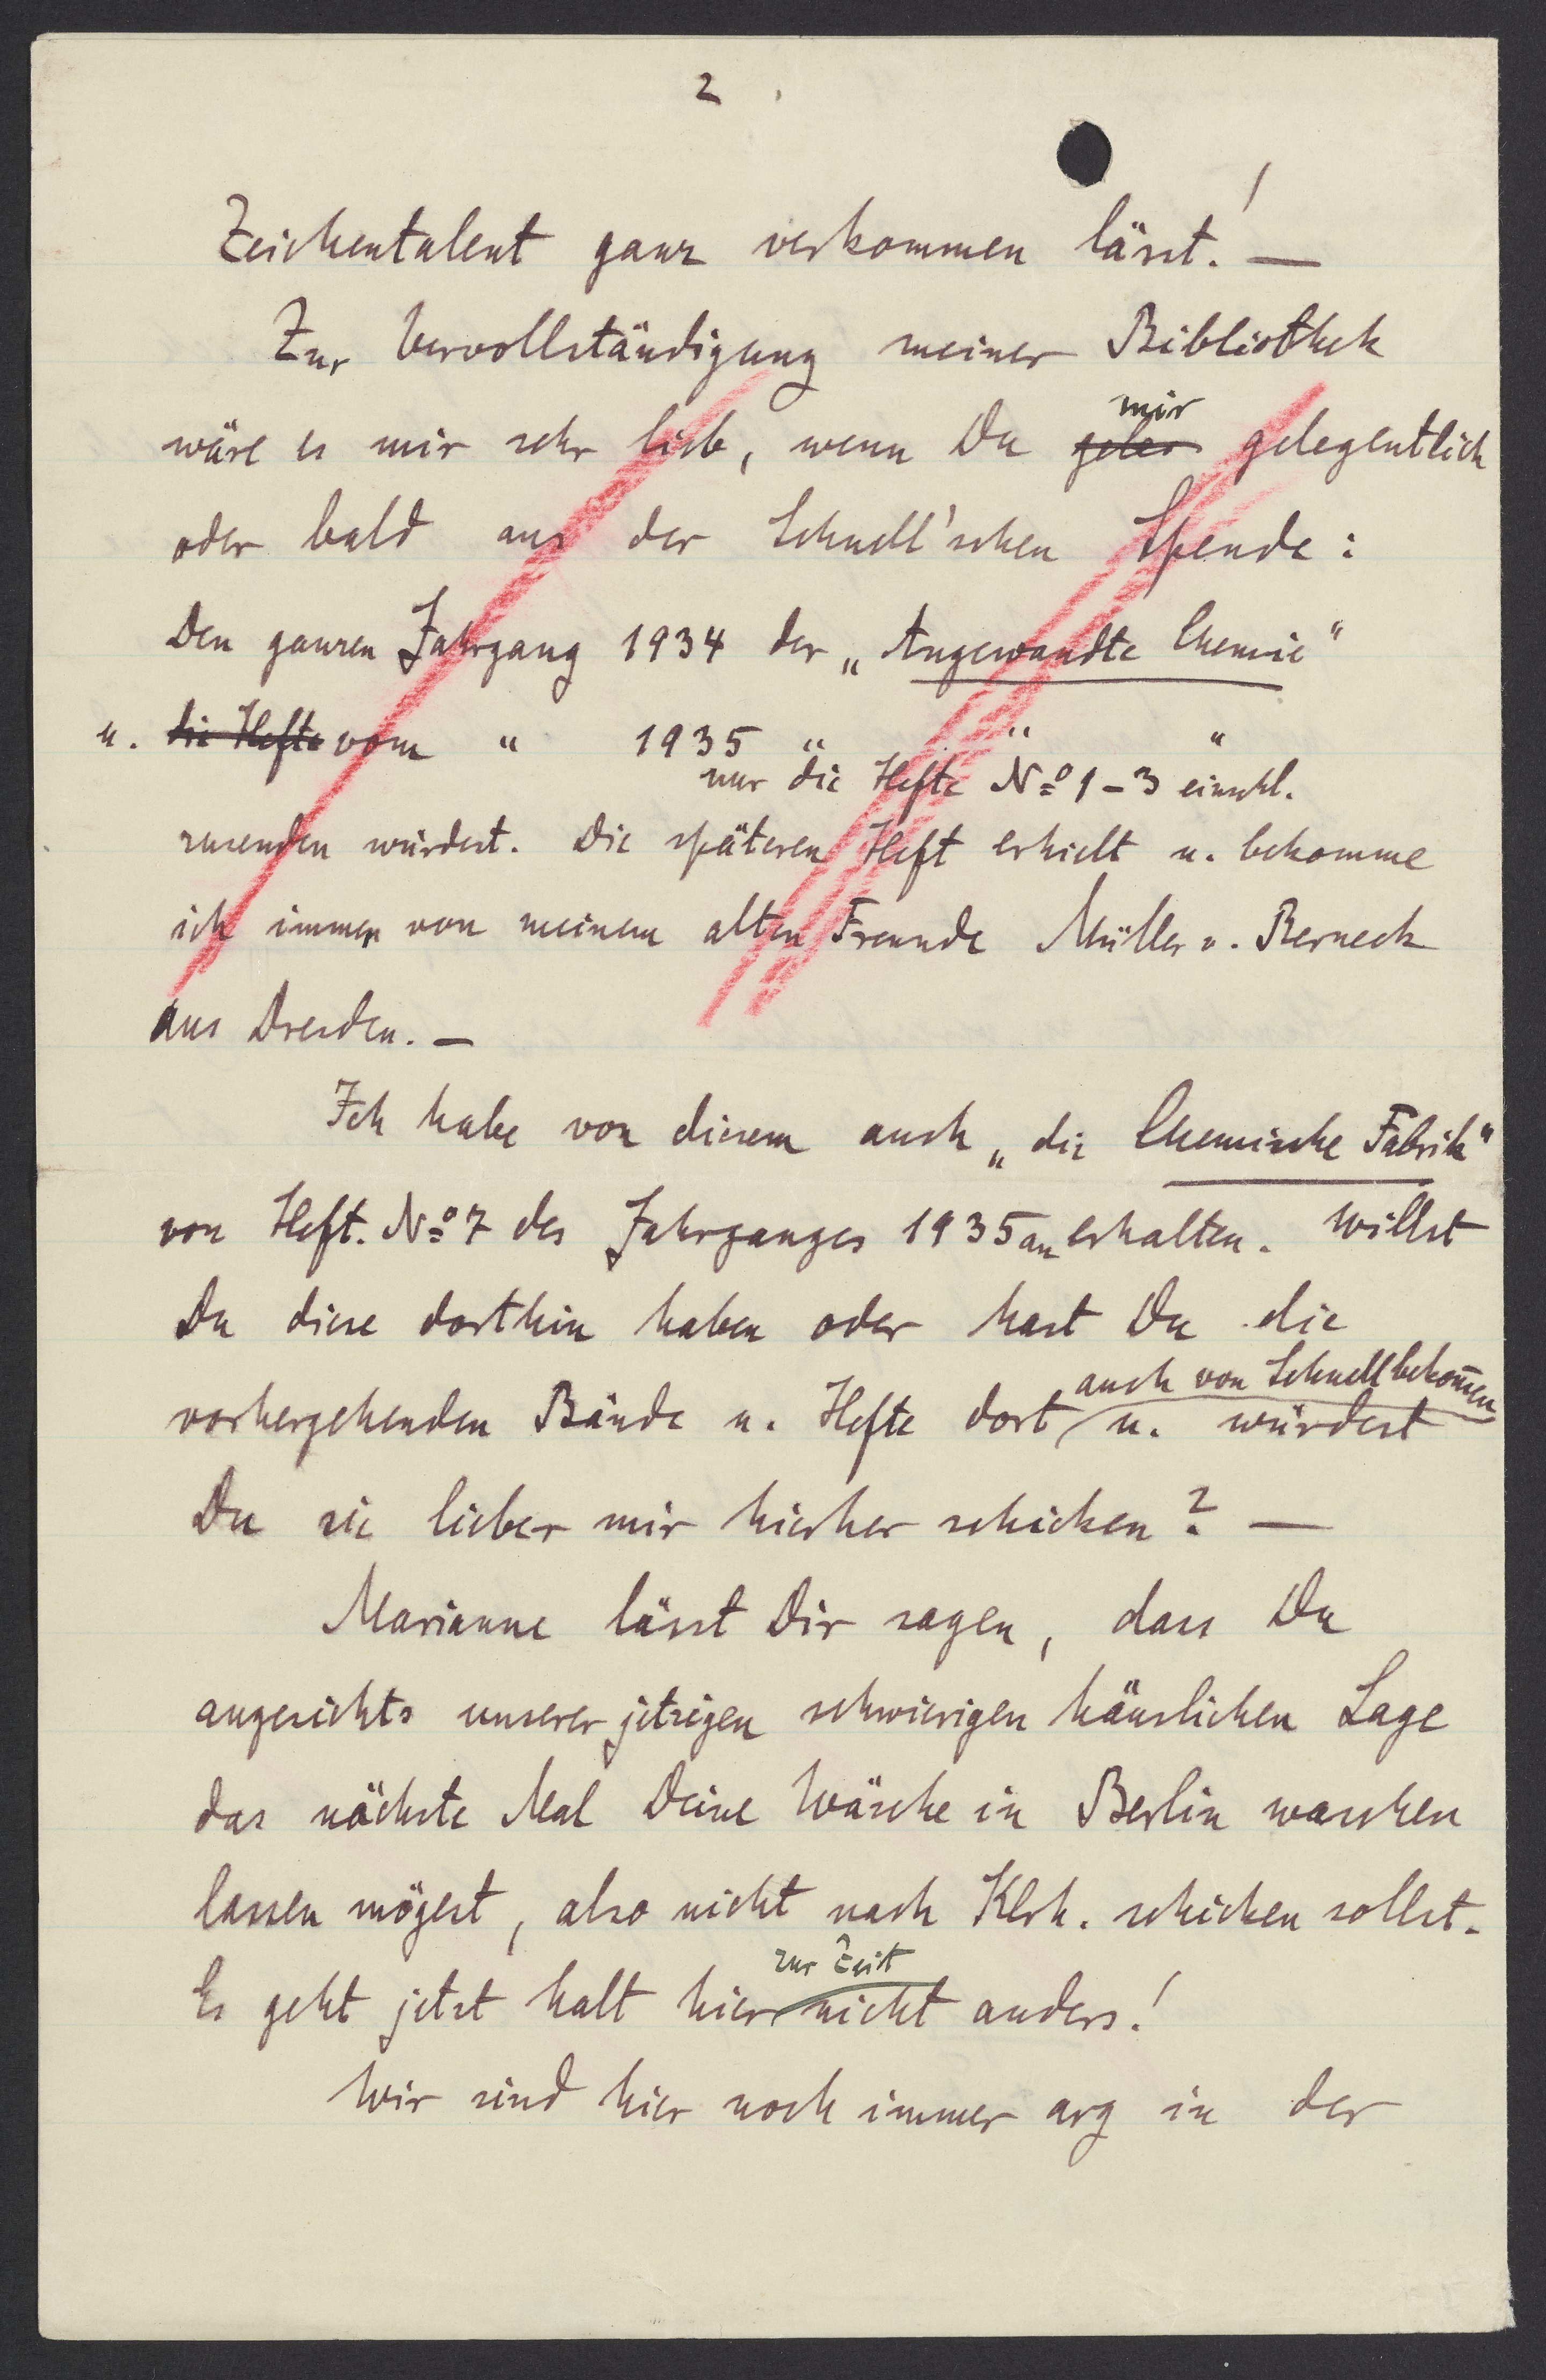 2
Zeichentalent ganz verkommen lässt! —
Zur Vervollständigung meiner Bibliothek
mir
wäre es mir sehr lieb, wenn Du geleg gelegentlich
oder bald aus der Schnell'schen Spende:
Den ganzen Jahrgang 1934 der „Angewandte Chemie"
u. die Hefte vom " 1935 " " "
nur die Hefte No 1-3 einschl.
zusenden würdest. Die späteren Heft erhielt u. bekomme
ich immer von meinem alten Freunde Müller v. Berneck
aus Dresden. —
Ich habe von diesem auch „die Chemische Fabrik"
von Heft. No 7 des Jahrganges 1935 an erhalten. Willst
Du diese dorthin haben oder hast Du die
auch von Schnell bekom̄en
vorhergehenden Bände u. Hefte dort u. würdest
Du sie lieber mir hierher schicken? —
Marianne lässt Dir sagen, dass Du
angesichts unserer jetzigen schwierigen häuslichen Lage
das nächste Mal Deine Wäsche in Berlin waschen
lassen mögest, also nicht nach Klsh. schicken sollst.
zur Zeit
Es geht jetzt halt hier nicht anders!
Wir sind hier noch immer arg in der